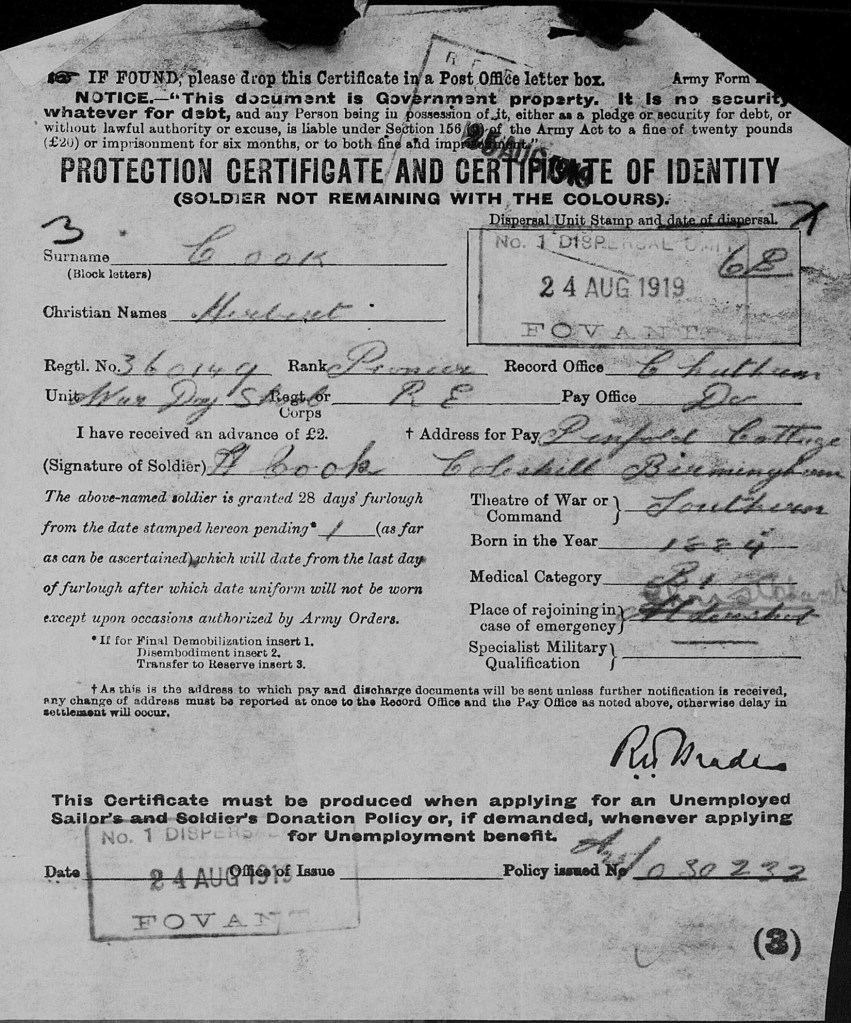 IF FOUND, please drop this Certificate in a Post Office letter box. Army Form
NOTICE.—"This document is Government property. It is no security
whatever for debt, and any Person being in possession of it, either as a pledge or security for debt, or
without lawful authority or excuse, is liable under Section 156 of the Army Act to a fine of twenty pounds
(£20) or imprisonment for six months, or to both fine and imprisonment."
AUG 1919
PROTECTION CERTIFICATE AND CERTIFICATE OF IDENTITY
(SOLDIER NOT REMAINING WITH THE COLOURS).
Dispersal Unit Stamp and date of dispersal.
3
Surname Cook
(Block letters)
No. 1 DISPERSAL UNIT
6B
24 AUG 1919
FOVANT
Christian Names Herbert
Regtl. No. 360149 Rank Pioneer Record Office Chatham
Unit War Dog School Regt. or Corps R E Pay Office Do
I have received an advance of £2. † Address for Pay Pinfold Cottage
(Signature of Soldier) H Cook Coleshill Birmingham
The above-named soldier is granted 28 days' furlough
from the date stamped hereon pending* 1 (as far
as can be ascertained) which will date from the last day
of furlough after which date uniform will not be worn
except upon occasions authorized by Army Orders.
* If for Final Demobilization insert 1.
Disembodiment insert 2.
Transfer to Reserve insert 3.
Theatre of War or Command } Southern
Born in the Year 1884
Medical Category B1
Place of rejoining in case of emergency }
Specialist Military Qualification }
† As this is the address to which pay and discharge documents will be sent unless further notification is received,
any change of address must be reported at once to the Record Office and the Pay Office as noted above, otherwise delay in
settlement will occur.
This Certificate must be produced when applying for an Unemployed
Sailor's and Soldier's Donation Policy or, if demanded, whenever applying
for Unemployment benefit.
No. 1 DISPERSAL
Date Office of Issue Policy issued No 030232
24 AUG 1919
FOVANT
(3)